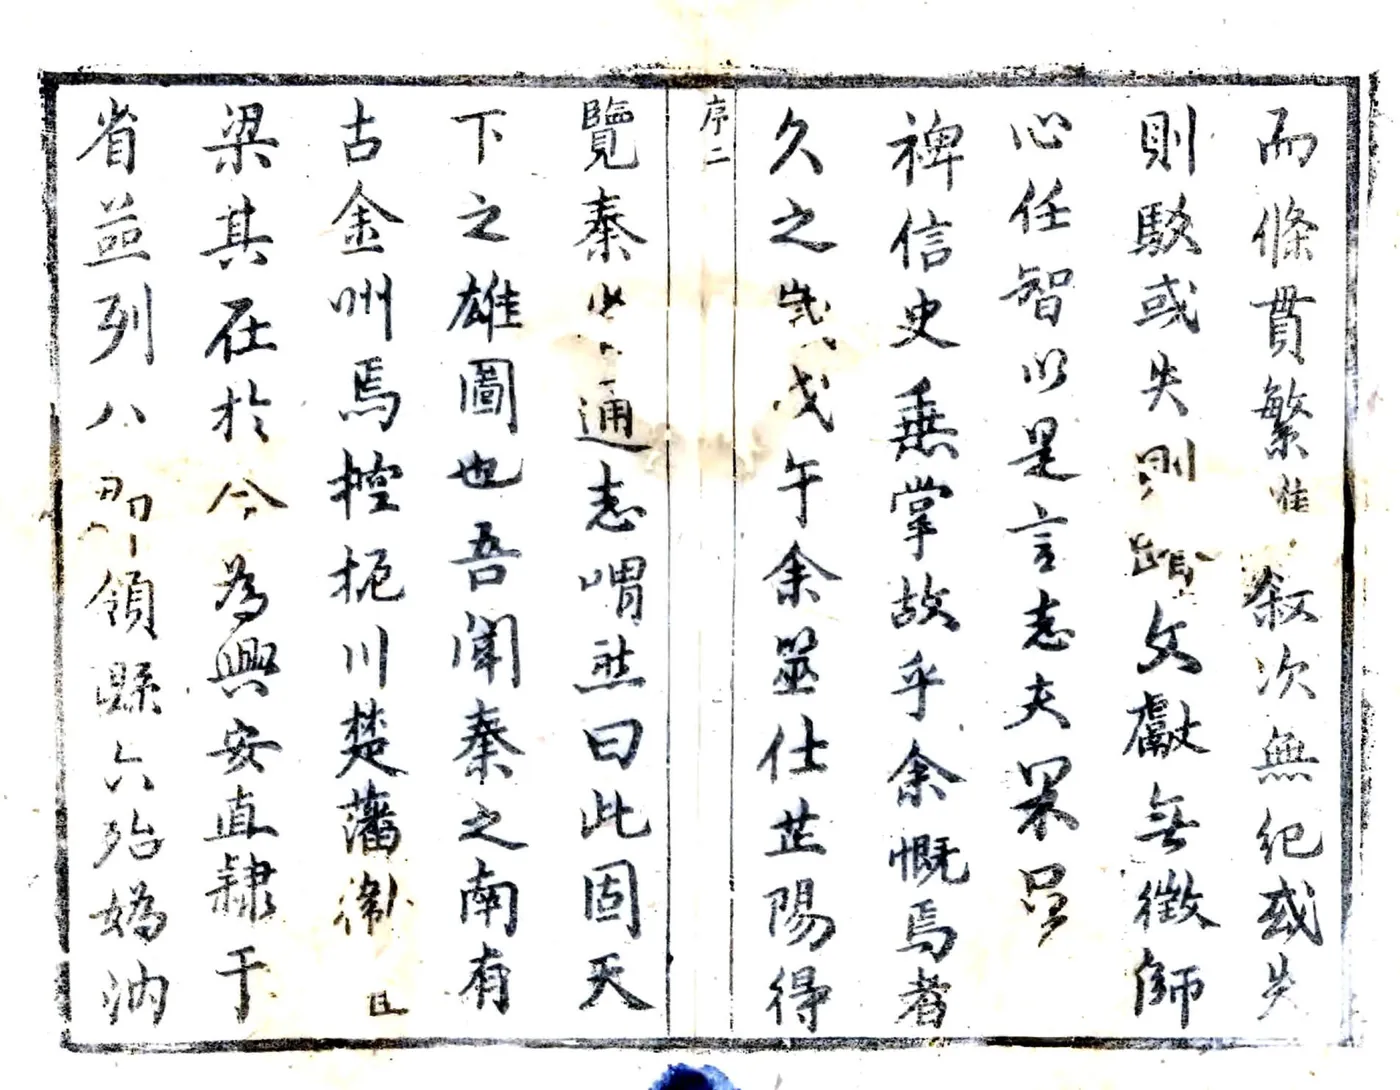 而條貫繁惟叙次無紀或失
則駁或失則踳文獻無徵師
心任智以是言志夫果足
裨信史垂掌故乎余慨焉者
久之歲戊午余筮仕芷陽得
序二
覽秦通志喟然曰此固天
下之雄圖也吾聞秦之南有
古金州焉控扼川楚藩衛
梁其在於今為興安直隸于
省並列八郡領縣六殆媯汭